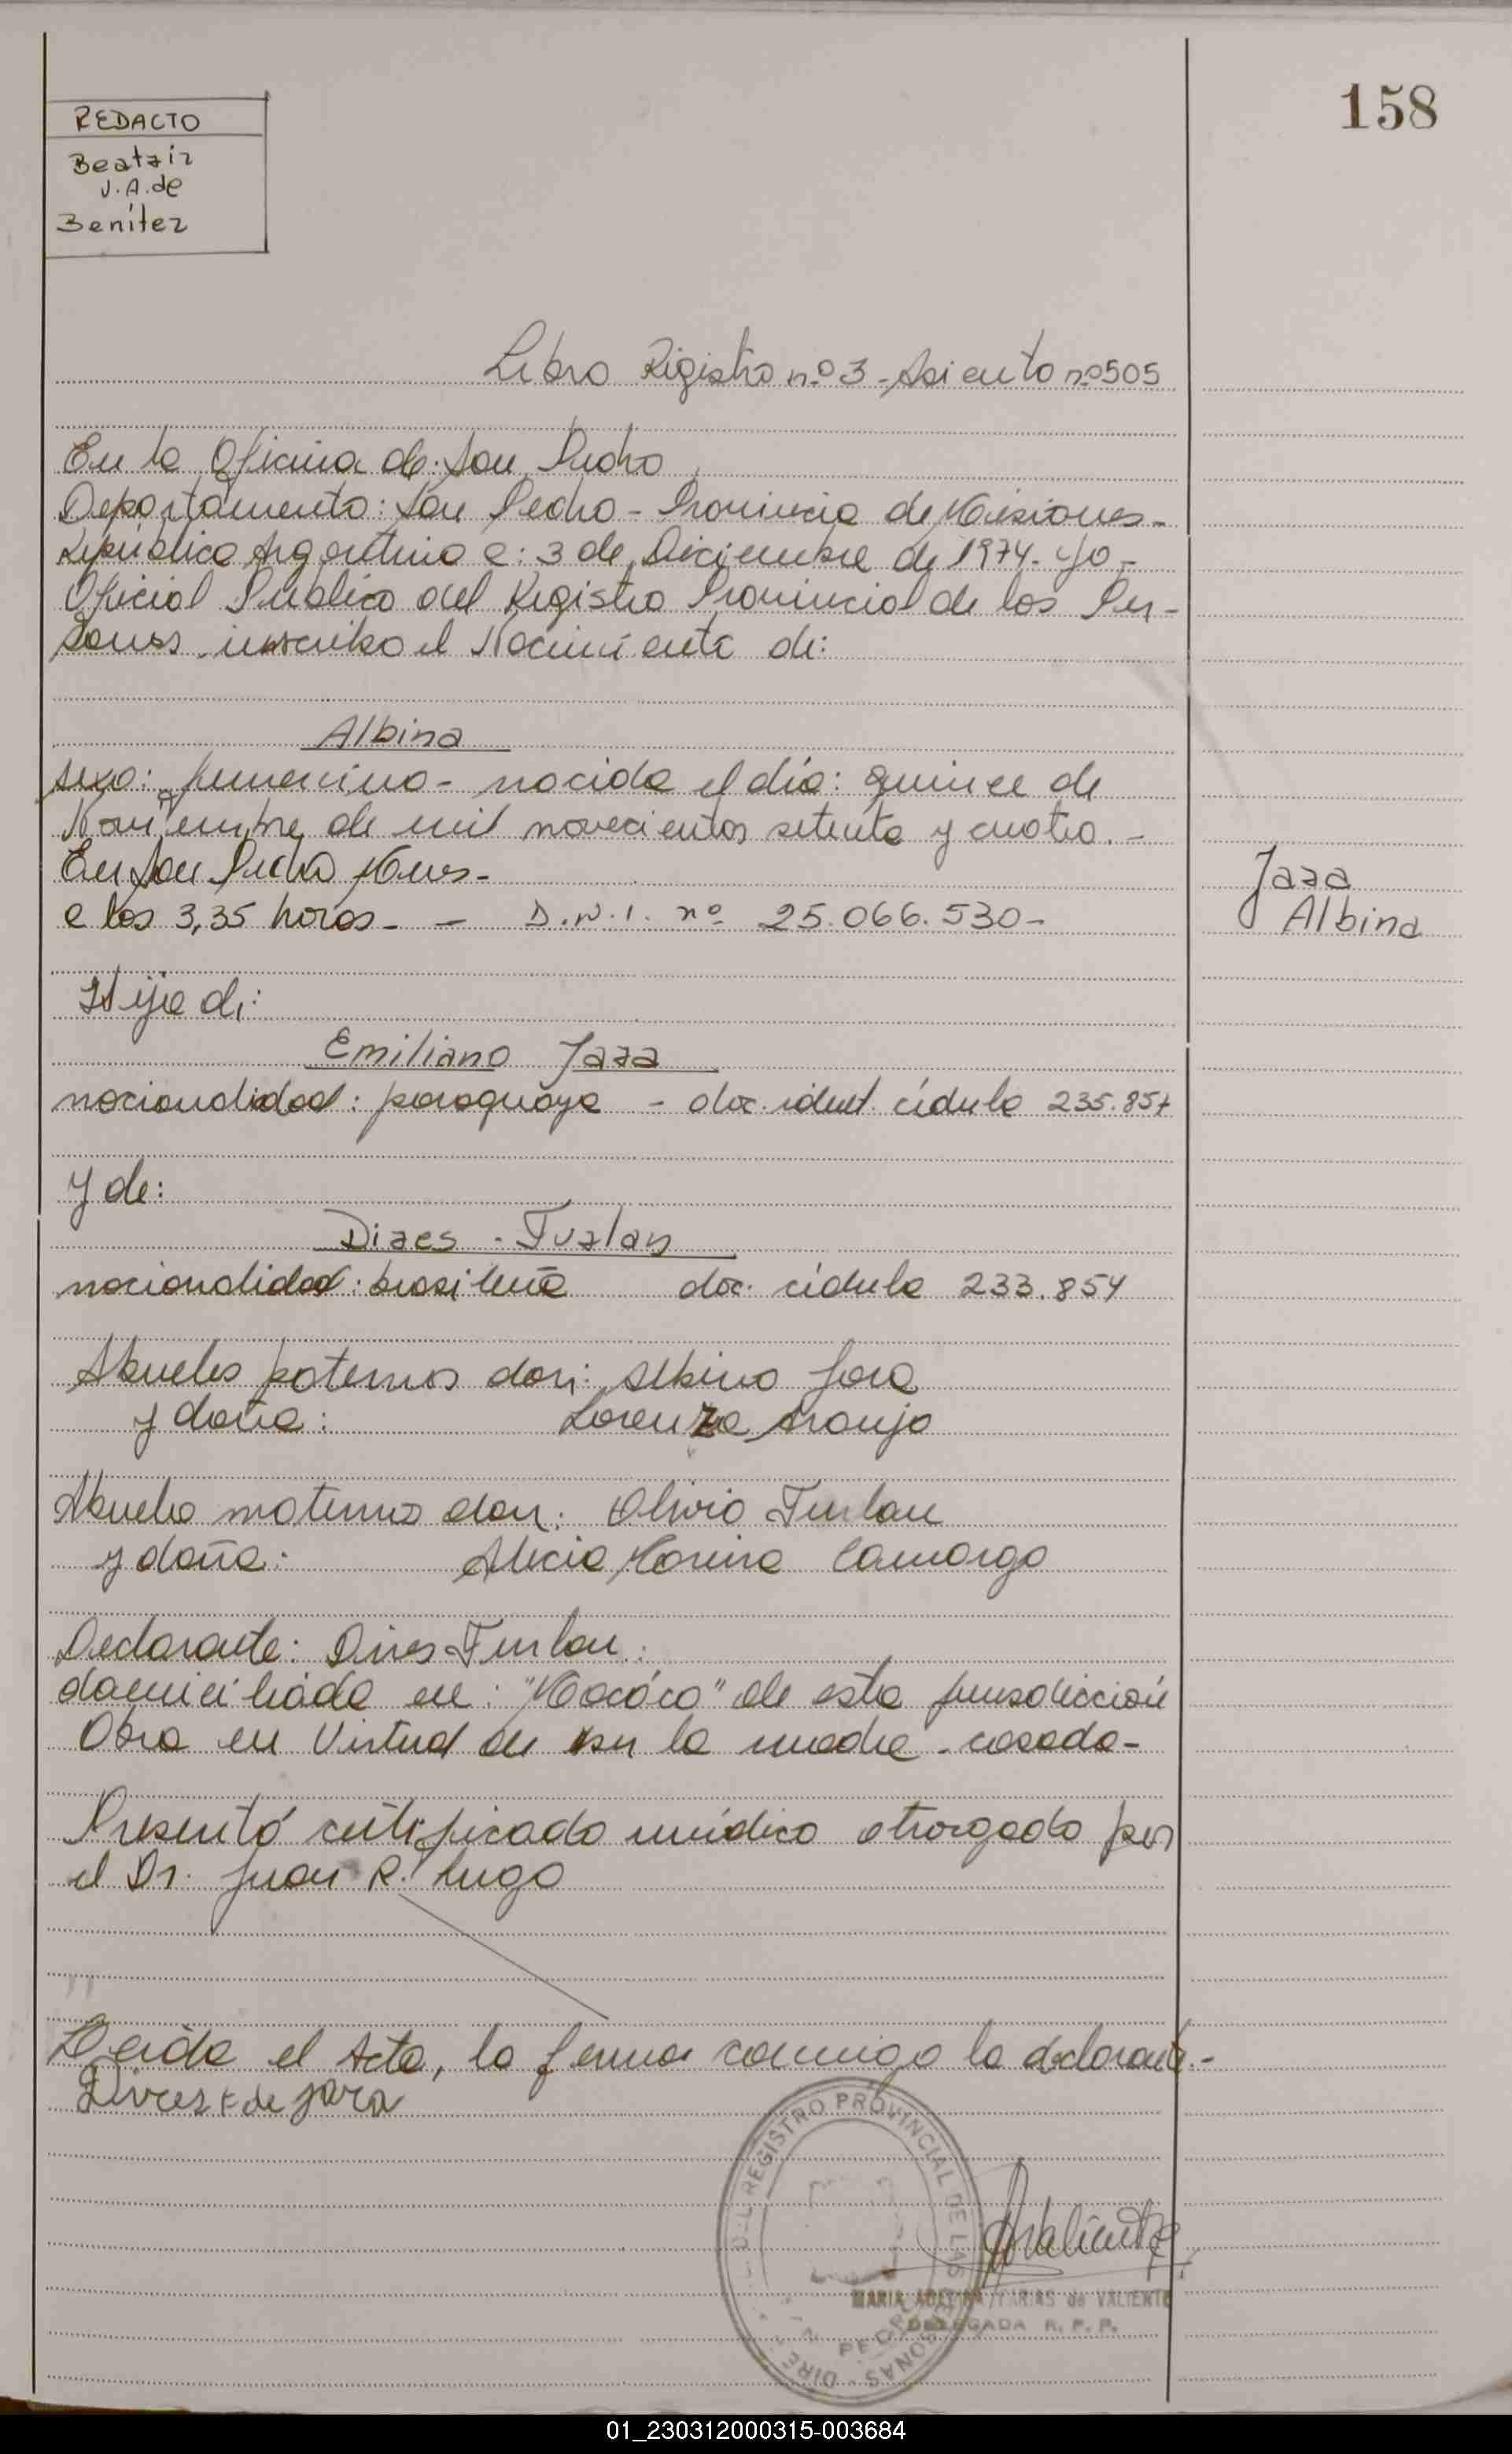 158
REDACTO
Beatriz
V. A. de
Benítez
Libro Registro nº 3 - Asiento nº 505
En la Oficina de: San Pedro
Departamento: San Pedro - Provincia de Misiones -
República Argentina a: 3 de Diciembre de 1974 - yo -
Oficial Público del Registro Provincial de las Per-
sonas inscribo el Nacimiento de:
Albina
sexo: femenino - nacida el día: quince de
Noviembre de mil novecientos setenta y cuatro. -
En San Pedro Mnes -
a las 3,35 horas - - D.N.I. nº 25.066.530 -
Jara
Albina
Hija de:
Emiliano Jara
nacionalidad: paraguaya - doc. ident. cédula 235.857
y de:
Dires - Furlan
nacionalidad: brasileña doc. cédula 233.854
Abuelos paternos don: Albino Jara
y doña: Lorenza Araujo
Abuelo materno don: Olivio Furlan
y doña: Alicia Camargo
Declarante: Dires Furlan.
domiciliada en: "Macáco" de esta jurisdicción
Obra en Virtud de ser la madre - casada -
Presentó certificado médico otorgado por
el Dr. Juan R. Lugo
Leída el Acta, la firma conmigo la declarante. -
Dires F de Jara
DIRE DEL REGISTRO PROVINCIAL DE LAS PERSONAS
PEDRO
MARIA ADELINA FARIAS de VALIENTE
DELEGADA R. P. P.
01_230312000315-003684